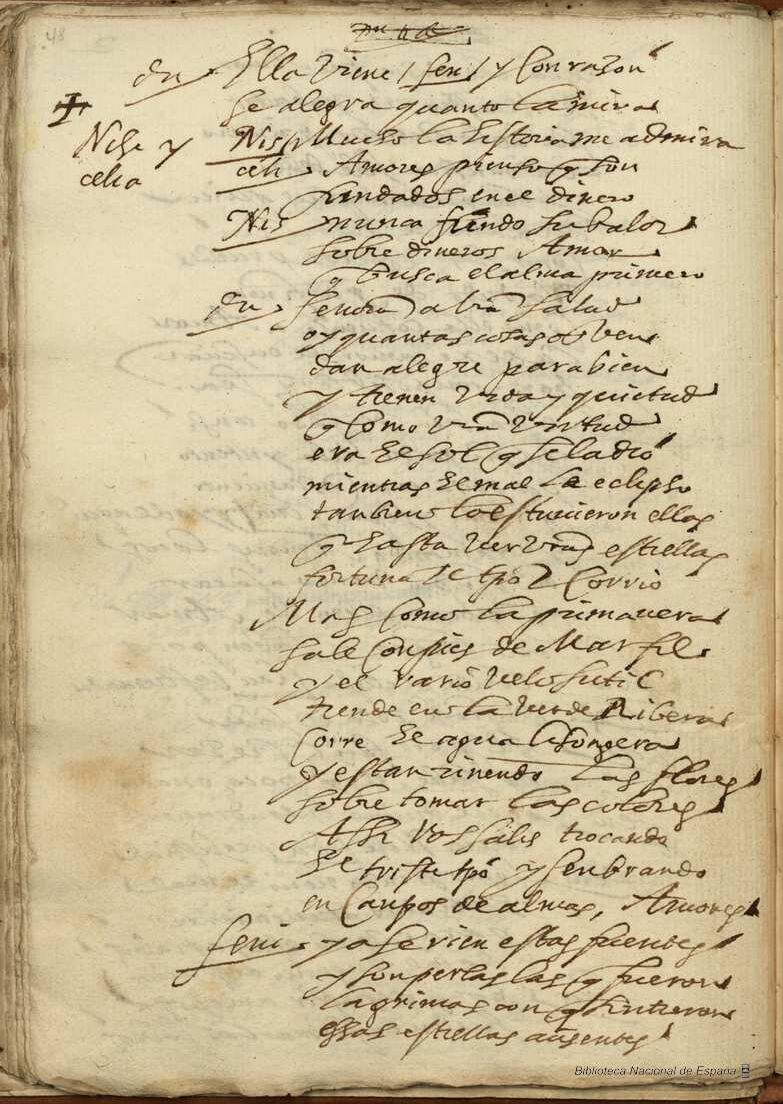 48
Du Ella viene / fen / y con razon
se alegra quanto la mira
Nise y celia
Nis / Mucho la historia me admira
celi Amores pienso q son
fundados en el dinero
Nis nunca fundo su balor
sobre dineros Amor
q busca el alma primero
Du señora a vra salud
oy quantas cosas os ven
dan alegre parabien
y tienen vida y quietud
q como vra virtud
era El sol q se la dio
mientras El mal le eclipso
tanbien lo estuuieron ellas
q hasta ver vras estrellas
fortuna El tpo corrio
Mas como la primauera
sale con pies de Marfil
y el vario velo sutil
tiende en la verde Ribera
corre El agua lisongera
y estan rinendo las flores
sobre tomar las colores
Assi vos salis trocando
El triste tpo y senbrando
en Canpos de almas, Amores
feni ya se rien estas fuentes
y son perlas las q fueron
lagrimas con q sintieron
essas estrellas ausentes
Biblioteca Nacional de España